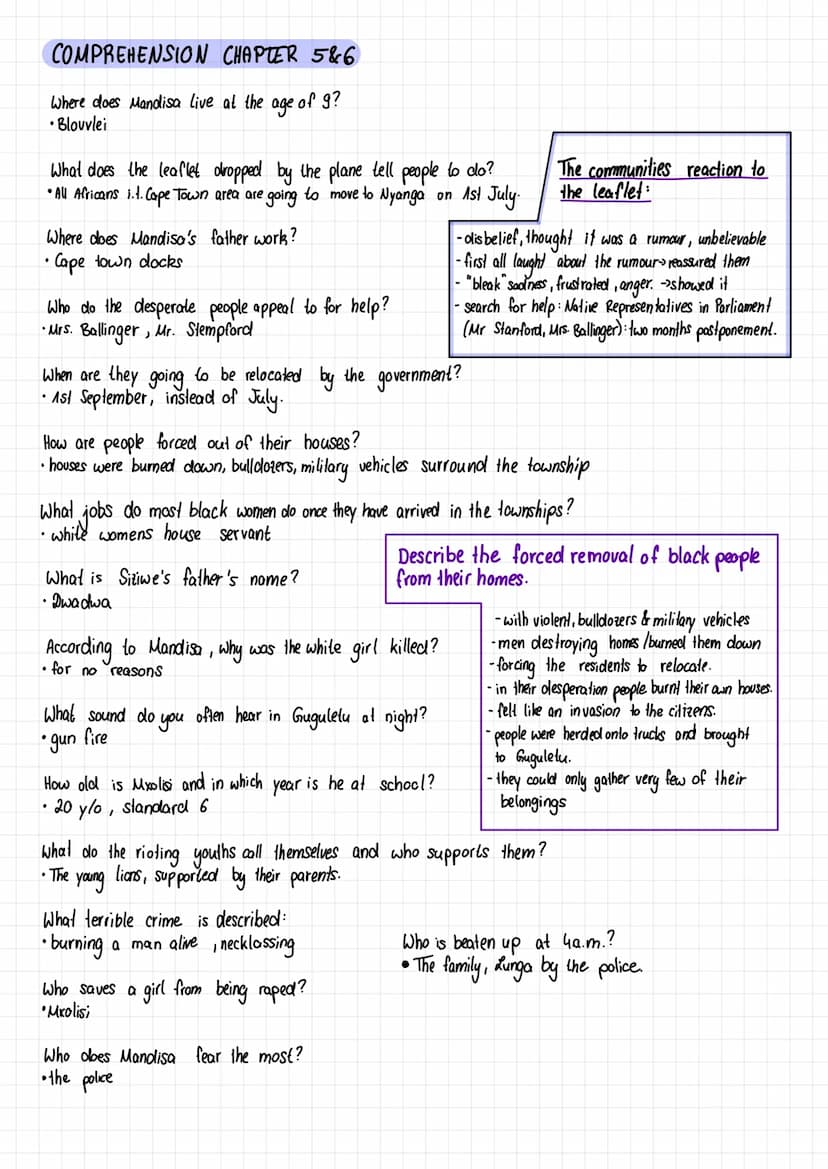 COMPREHENSION CHAPTER 5&6
Where does Mandisa live at the age of 9?
• Blouvlei
What does the leaflet dropped by the plane tell people to do?
• All Africans i.t. Cape Town area are going to move to Nyanga on 1st July.
The communities reaction to
the leaflet:
- disbelief, thought it was a rumour, unbelievable
- first all laught about the rumour→reassured them
- "bleak" sadness, frustrated, anger. →showed it
- search for help: Native Representatives in Parliament
(Mr Stanford, Mrs. Ballinger): two months postponement.
Where does Mandisa's father work?
• Cape town docks
Who do the desperate people appeal to for help?
• Mrs. Ballinger, Mr. Stempford
When are they going to be relocated by the government?
• 1st September, instead of July.
How are people forced out of their houses?
• houses were burned down, bulldozers, military vehicles surround the township
What jobs do most black women do once they have arrived in the townships?
• white womens house servant
What is Siziwe's father's name?
• Dwadwa
According to Mandisa, why was the white girl killed?
• for no reasons
What sound do you often hear in Guguletu at night?
• gun fire
How old is Mxolisi and in which year is he at school?
• 20 y/o, standard 6
Describe the forced removal of black people
from their homes.
- with violent, bulldozers & military vehicles
- men destroying homes/burned them down
- forcing the residents to relocate.
- in their desperation people burnt their own houses.
- felt like an invasion to the citizens.
- people were herded onto trucks and brought
to Guguletu.
- they could only gather very few of their
belongings
What do the rioting youths call themselves and who supports them?
• The young lions, supported by their parents.
What terrible crime is described:
• burning a man alive, necklassing
Who saves a girl from being raped?
• Mxolisi
Who does Mandisa fear the most?
• the police
Who is beaten up at 4a.m.?
• The family, Lunga by the police.